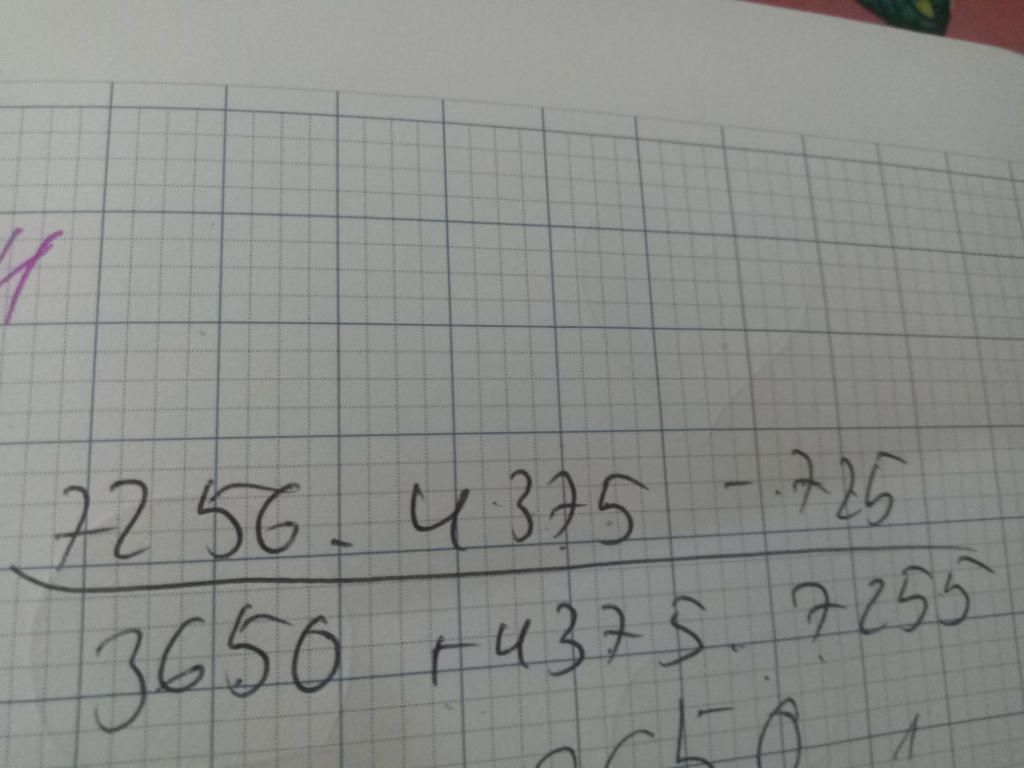 7256 . 4375 - 725
3650 + 4375 . 7255